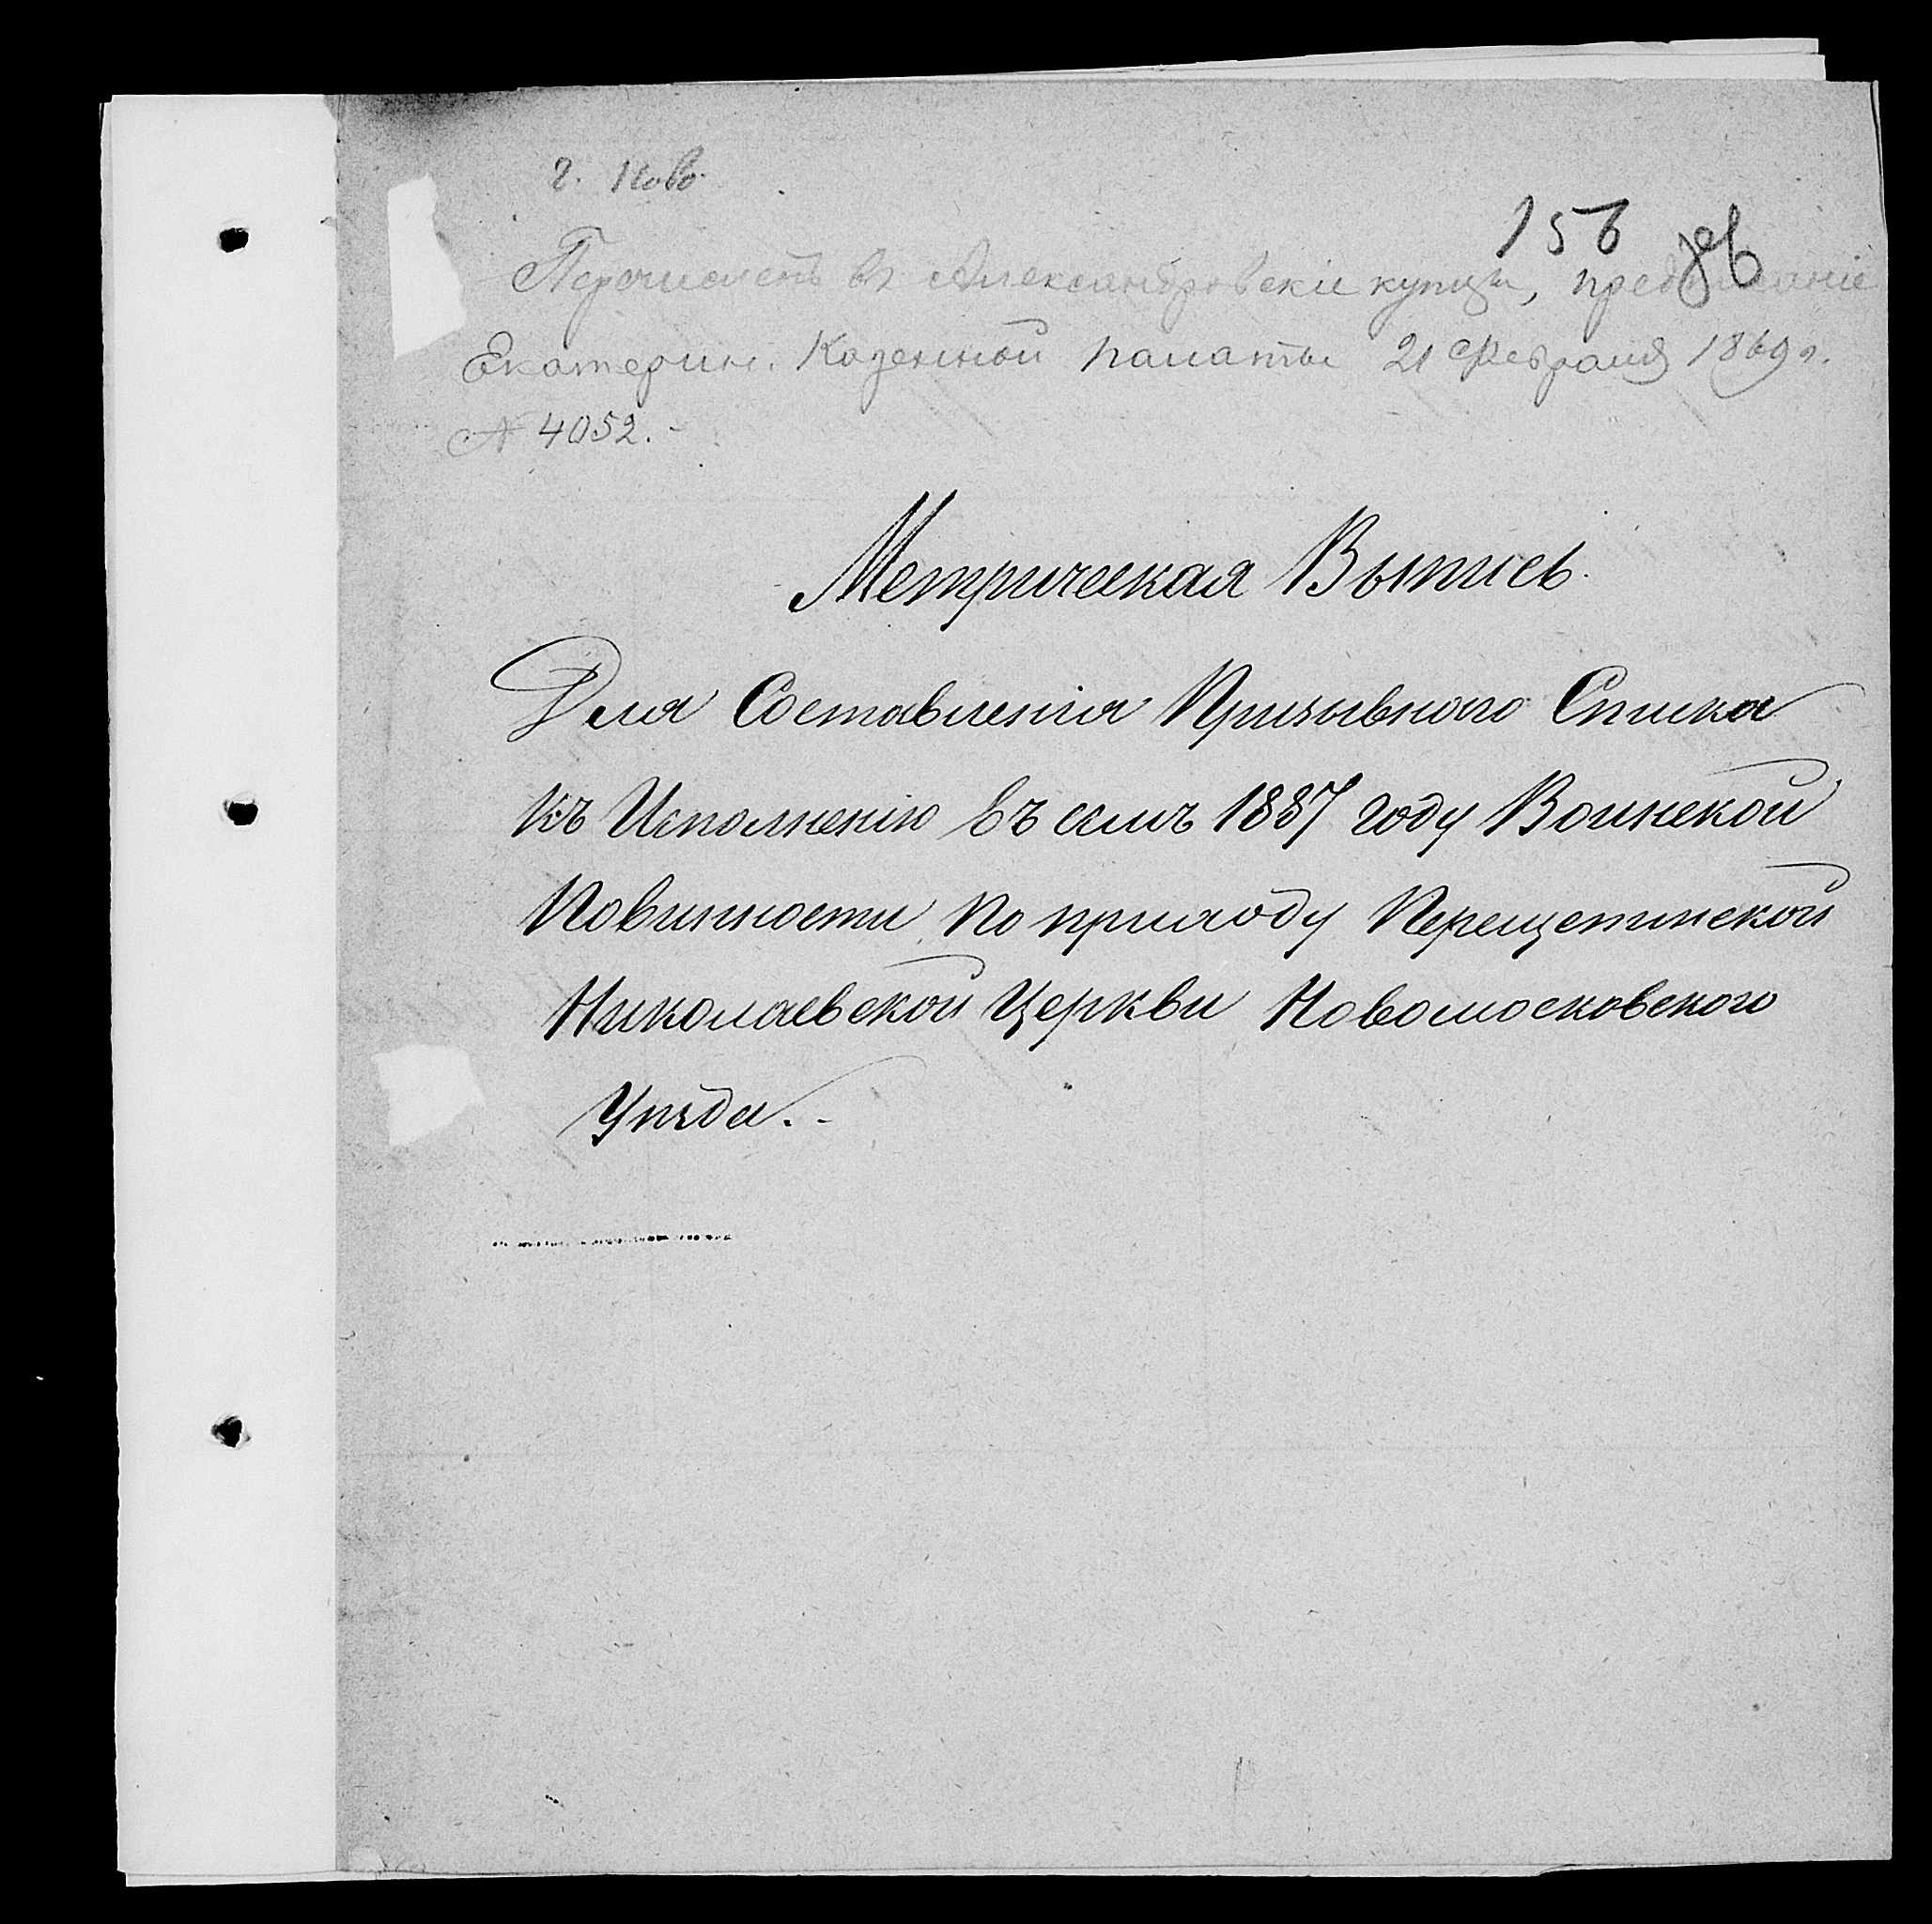 г. Ново
156 86
Перечисленъ въ Александровскіе купцы, предписаніе
Екатерин. Казенной палаты 21 Февраля 1869 г.
№ 4052.-
Метрическая Выпись.
Для Составленія Призывного Списка
Къ Исполненію въ семъ 1887 году Воинской
Повинности по приходу Перещепинской
Николаевской Церкви Новомосковского
Уѣзда.-